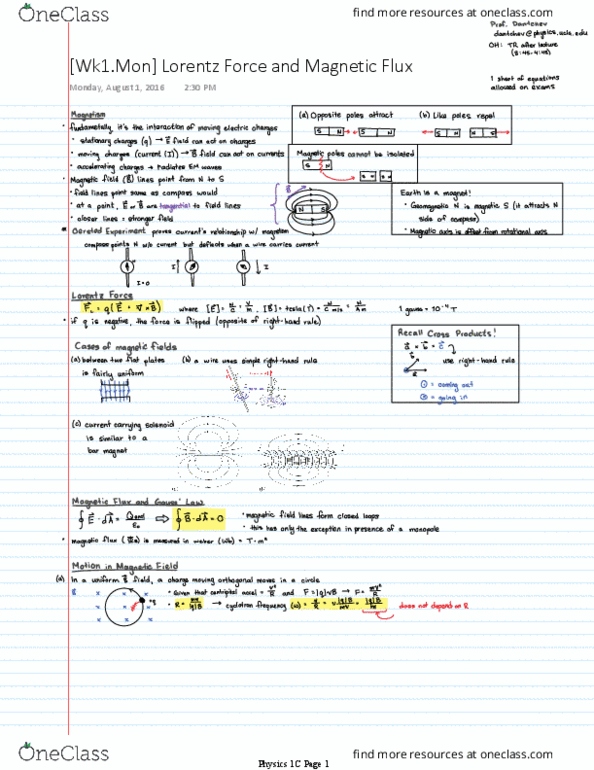 OneClass
find more resources at oneclass.com
Prof. Dantchev
dantchev@physics.ucla.edu
OH: TR after lecture
(3:45-4:45)
[Wk1.Mon] Lorentz Force and Magnetic Flux
Monday, August 1, 2016 2:30 PM
1 sheet of equations
allowed on exams
Magnetism
• fundametally, it's the interaction of moving electric charges
• stationary charges (q) → E⃗ field can act on charges
• moving charges (current (I)) → B⃗ field can act on currents
• accelerating charges → radiates EM waves
• Magnetic field (B⃗) lines point from N to S
• field lines point same as compass would
• at a point, E⃗ or B⃗ are tangential to field lines
• closer lines = stronger field
(a) Opposite poles attract (b) Like poles repel
S N S N S N N S
Magnetic poles cannot be isolated
S N
S N S N
B⃗
N S
Earth is a magnet!
• Geomagnetic N is magnetic S (it attracts N
side of compass)
• Magnetic axis is offset from rotational axis
Oersted Experiment proves current's relationship w/ magnetism
compass points N w/o current but deflects when a wire carries current
I=0 I↑ ↓I
Lorentz Force
F⃗ = q(E⃗ + v⃗ × B⃗) where [E] = N/C = V/m, [B] = tesla(T) = N/C m/s = N/Am 1 gauss = 10⁻⁴ T
• if q is negative, the force is flipped (opposite of right-hand rule)
Cases of magnetic fields
(a) between two flat plates
is fairly uniform
(b) a wire uses simple right-hand rule
Recall Cross Products!
a⃗ × b⃗ = c⃗
use right-hand rule
= coming out
= going in
(c) current carrying solenoid
is similar to a
bar magnet
Magnetic Flux and Gauss' Law
∮E⃗·dA⃗ = Qencl/ε₀ ⇒ ∮B⃗·dA⃗ = 0
• magnetic field lines form closed loops
• this has only the exception in presence of a monopole
• magnetic flux (Φ_B) is measured in weber (Wb) = T·m²
Motion in Magnetic Field
(a) In a uniform B⃗ field, a charge moving orthogonal moves in a circle
• Given that centripetal accel = v²/R and F=|q|vB → F = mv²/R
• R = mv/|q|B → cyclotron frequency (ω) = v/R = v|q|B/mv = |q|B/m does not depend on R
OneClass
find more resources at oneclass.com
Physics 1C Page 1